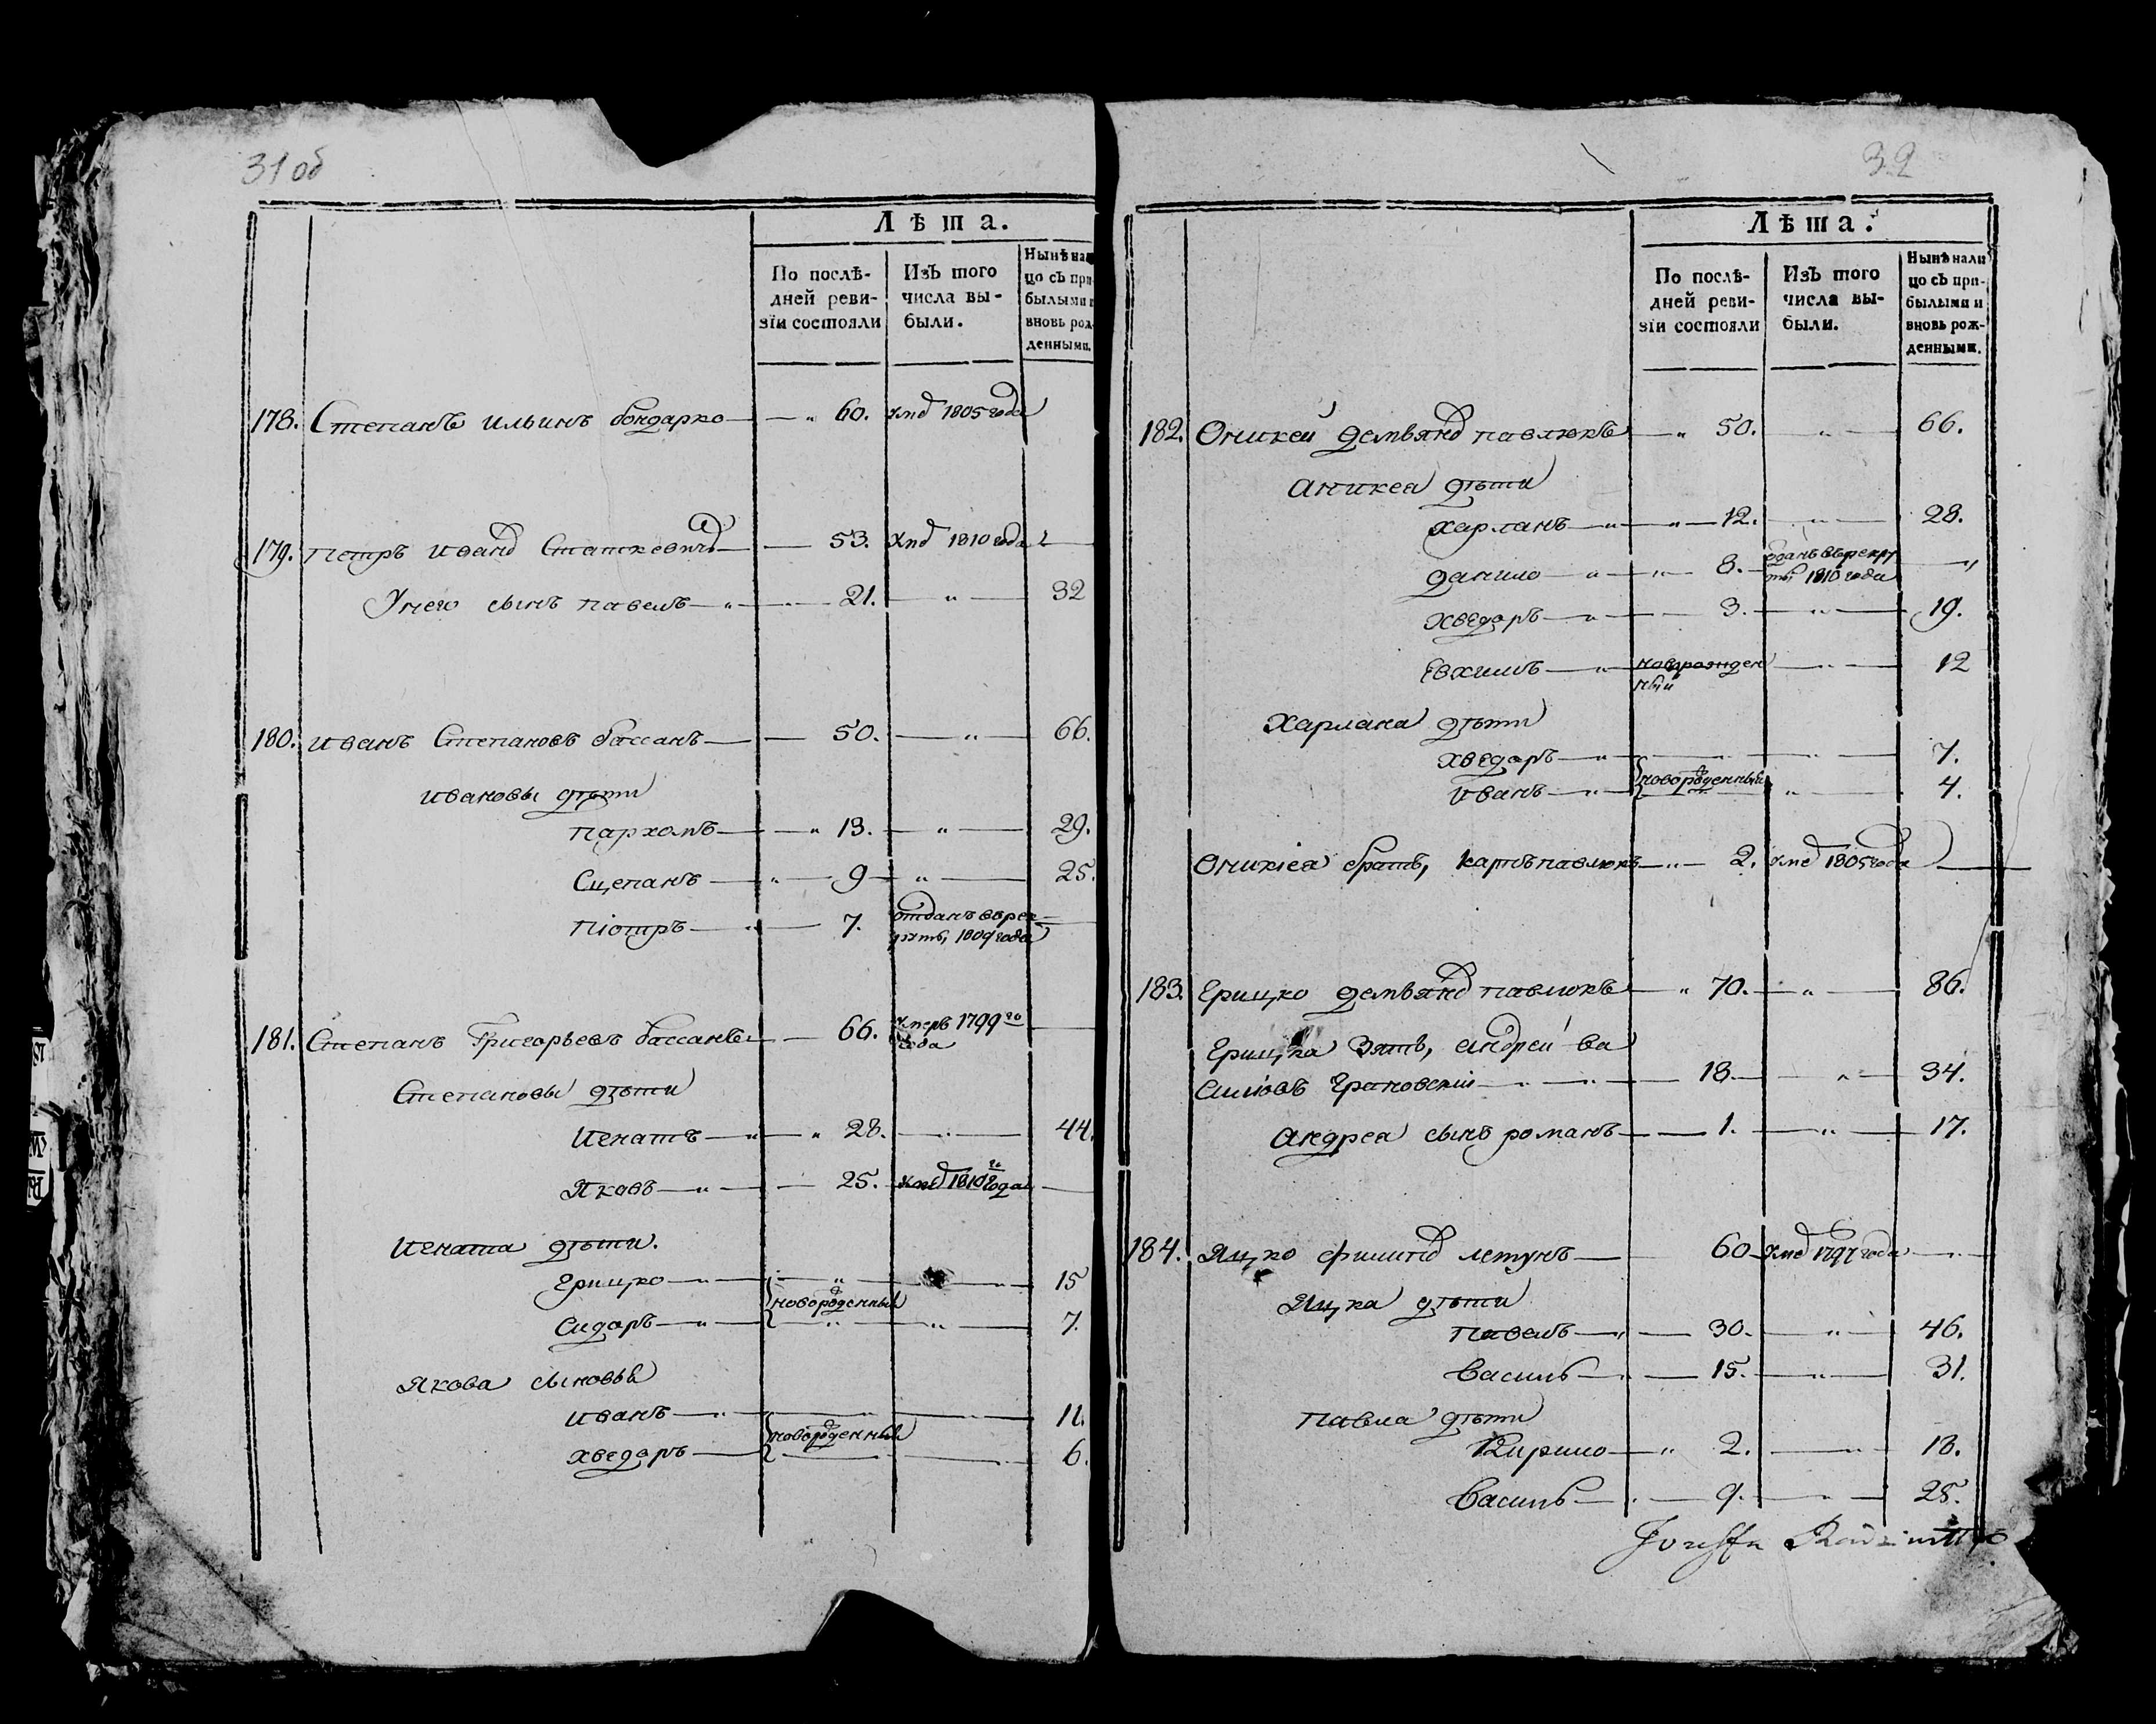 31 об
Лѣта.
По послѣ-
дней реви-
зіи состояли
Изъ того
числа вы-
были.
Нынѣ на
цо съ при
былыми и
вновь рож
денными.
178. Степанъ Ильинъ бондарко — „ 60. умеръ 1805 года
179. Петръ Ивановъ Статкевичъ — 53. умеръ 1810 года
У него сынъ павелъ — „ — 21. — „ — 32
180. Иванъ Степановъ бассанъ — 50. — „ — 66.
Ивановы дѣти
пархомъ — „ 13. — „ — 29.
Сцепанъ — „ — 9 — „ — 25.
піотръ — „ — 7. отданъ в рек-
руты, 1809 года
181. Степанъ Григорьевъ бассанъ — 66. умеръ 1799 го
года
Степановы дѣти
Игнатъ — „ — „ 28. — „ — 44.
Яковъ — „ — 25. умеръ 1810 го года
Игната дѣти.
Грицко — „ — „ — „ — 15
новорожденный
Сидоръ — „ — „ — „ — 7.
Якова сыновья
Иванъ — „ — „ — 11.
новорожденный
хведоръ — 6.
32
Лѣта.
По послѣ-
дней реви-
зіи состояли
Изъ того
числа вы-
были.
Нынѣ нали
цо съ при-
былыми и
вновь рож-
денными.
182. Оникей демьяновъ павлюкъ — „ 50. — „ — 66.
Аникея дѣти
харланъ — „ — „ — 12. — „ — 28.
данило — „ — „ — 8. — отданъ въ рекру
ты 1810 года — „
хведоръ — „ — 3. — „ — 19.
Евхимъ — „ новорожден
ный — „ — 12
Харлана дѣти
хведоръ — „ — „ — 7.
новорожденный
Иванъ — „ — „ — 4.
Оникіея братъ, карпъ павлюкъ — „ — 2. умеръ 1805 года
183. Грицко демьяновъ павлюкъ — „ 70. — „ — 86.
Грицка Зять, андрей ва
силіовъ Грановскій — „ — „ — 18. — „ — 34.
андрея сынъ романъ — 1. — „ — 17.
184. Яцко филиповъ летунъ — 60 умеръ 1797 года — „
Яцка дѣти
павелъ — „ — 30. — „ — 46.
Василь — „ — 15. — „ — 31.
павла дѣти
Кирило — „ 2. — „ — 18.
Василь — „ — 9. — „ — 25.